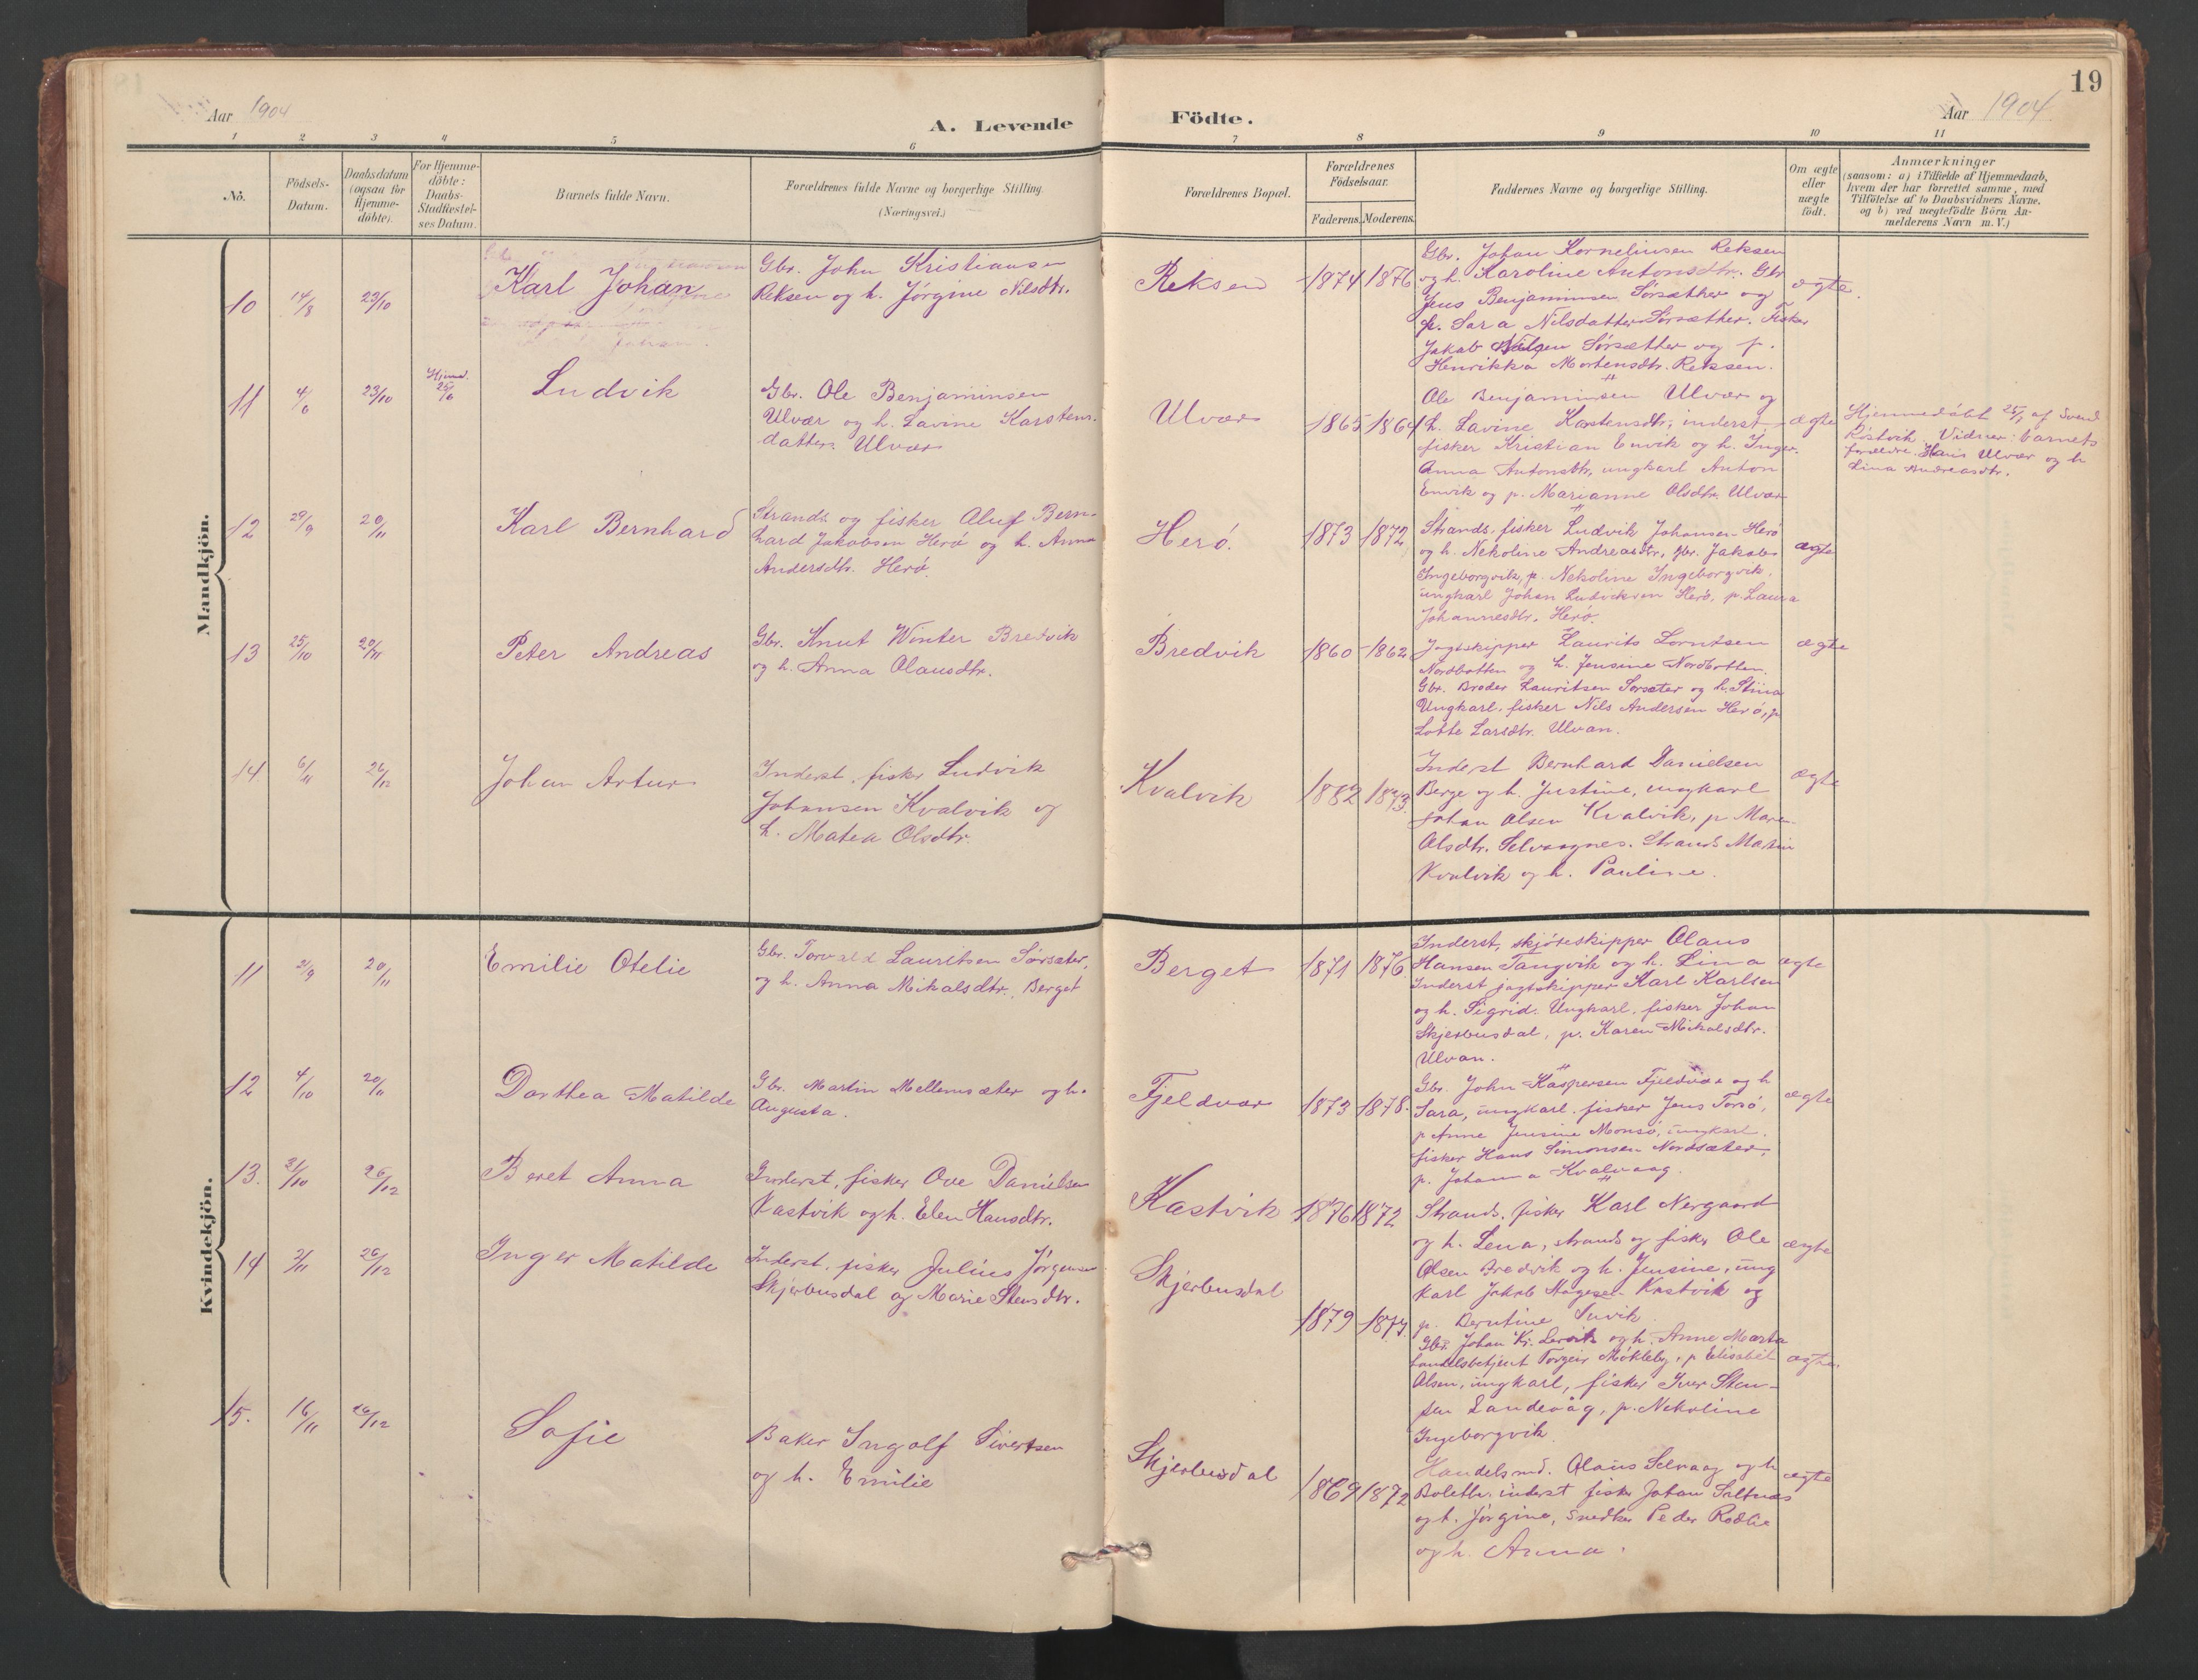 19
Aar 1904
A. Levende Födte.
Aar 1904.
1 2 3 4 5 6 7 8 9 10 11
No.
Födsels-
Datum.
Daabsdatum
(ogsaa for
Hjemme-
döbte).
For Hjemme-
döbte:
Daabs-
Stadfæstel-
ses Datum.
Barnets fulde Navn.
Forældrenes fulde Navne og borgerlige Stilling.
(Næringsvei.)
Forældrenes Bopæl.
Forældrenes
Födselsaar.
Faderens. Moderens.
Faddernes Navne og borgerlige Stilling.
Om ægte
eller
uægte
födt.
Anmærkninger
(saasom: a) i Tilfælde af Hjemmedaab,
hvem der har forrettet samme, med
Tilföielse af to Daabsvidners Navne,
og b) ved uægtefödte Börn An-
melderens Navn m. V.)
Mandkjön.
10 14/8 23/10
Karl Johan
Gbr. John Kristiansen
Reksen og h. Jörgine Nilsdtr.
Reksen
1874 1876
Gbr. Johan Kornelinsen Reksen
og h. Karoline Antonsdtr. Gbr
Jens Benjaminsen Sörsæther og
p. Sara Nilsdatter Sörsæther. Fisker
Jakob Sörsæther og p.
Henrikka Mortensdtr. Reksen.
ægte.
11 4/6 23/10
Hjemd.
25/6
Ludvik
Gbr. Ole Benjaminsen
Ulvær og h. Lavine Karstens-
datter. Ulvær
Ulvær
1865 1864
Ole Benjaminsen Ulvær og
h. Lavine Kastensdtr, inderst
fisker Kristian Envik og h. Inger
Anna Antonsdtr, ungkarl Anton
Envik og p. Marianne Olsdtr. Ulvær
ægte
Hjemmedöbt 25/ af Svend
Röstvik. Vidner: barnets
forældre. Hans Ulvær og h
Lina Andreasdtr.
12 29/9 20/11
Karl Bernhard
Strands. og fisker Aluf Bern-
hard Jakobsen Herö og h. Anna
Andersdtr. Herö.
Herö.
1873 1872
Strands. fisker Ludvik Johansen Herö
og h. Nekoline Andreasdtr, gbr. Jakob
Ingeborgvik, p. Nekoline Ingeborgvik,
ungkarl Johan Ludvicksen Herö, p. Laura
Johannesdtr. Herö.
ægte
13 25/10 20/11
Peter Andreas
Gbr. Knut Winter Bredvik
og h. Anna Olausdtr.
Bredvik
1860 1862
Jagtskipper Laurits Lorntsen
Nordbotten og h. Jensine Nordbotten.
Gbr. Broder Lauritsen Sörsæter og h. Stina
Ungkarl. fisker Nils Andersen Herö, p
Lotte Larsdtr. Ulvan.
ægte
14 6/11 26/12
Johan Artur
Inderst, fisker Ludvik
Johansen Kvalvik og
h. Matea Olsdtr.
Kvalvik
1882 1873.
Inderst Bernhard Danielsen
Berge og h. Justine, ungkarl
Johan Olsen Kvalvik, p Mare
Olsdtr. Selvaagnes. Strands Martin
Kvalvik og h. Pauline.
ægte
Kvindekjön.
11 2/9 20/11
Emilie Otelie
Gbr. Torvald Lauritsen Sörsæter,
og h. Anna Mikalsdtr. Berget
Berget
1871 1876
Inderst, skjöteskipper Olaus
Hansen Tangvik og h. Lina
Inderst jagtskipper Karl Karlsen
og h. Sigrid. Ungkarl. fisker Johan
Skjerbusdal, p. Karen Mikalsdtr.
Ulvan.
ægte
12 4/10 20/11
Dorthea Matilde
Gbr. Martin Mellemsæter og h.
Augusta.
Fjeldvær
1873 1878.
Gbr. John Kaspersen Fjeldvær og h
Sara, ungkarl. fisker Jens Torsö,
p Anne Jensine Monsö, ungkarl.
fisker Hans Simonsen Nordsæter,
p. Johanna Kvalvaag.
ægte
13. 21/10 26/12
Beret Anna
Inderst, fisker Ove Danielsen
Kastvik og h. Elen Hansdtr.
Kastvik
1876 1872
Strands. fisker Karl Nergaard
og h. Lena, strands og fisker Ole
Olsen Bredvik og h. Jensine, ung
karl Jakob Kastvik og
p. Berntine
ægte
14 2/11 26/12
Inger Matilde
Inderst, fisker Julius Jörgensen
Skjerbusdal og Marie Stensdtr.
Skjerbusdal
1879 1877.
Gbr. Johan Kr. Lervik og h. Anne Marta
handelsbetjent Torgeir Mökleby, p Elisabet
Olsen, ungkarl, fisker Iver Sten-
sen Landevåg, p. Nekoline
Ingeborgvik.
ægte.
15. 16/11 26/12
Sofie
Baker Ingolf Sivertsen
og h. Emilie
Skjerbusdal
1869 1872
Handelsmd. Olaus Selvaag og h
Boleth. inderst fisker Johan Saltnes
og h. Jörgine, snedker Peder Rödlie
og h. Anna.
ægte